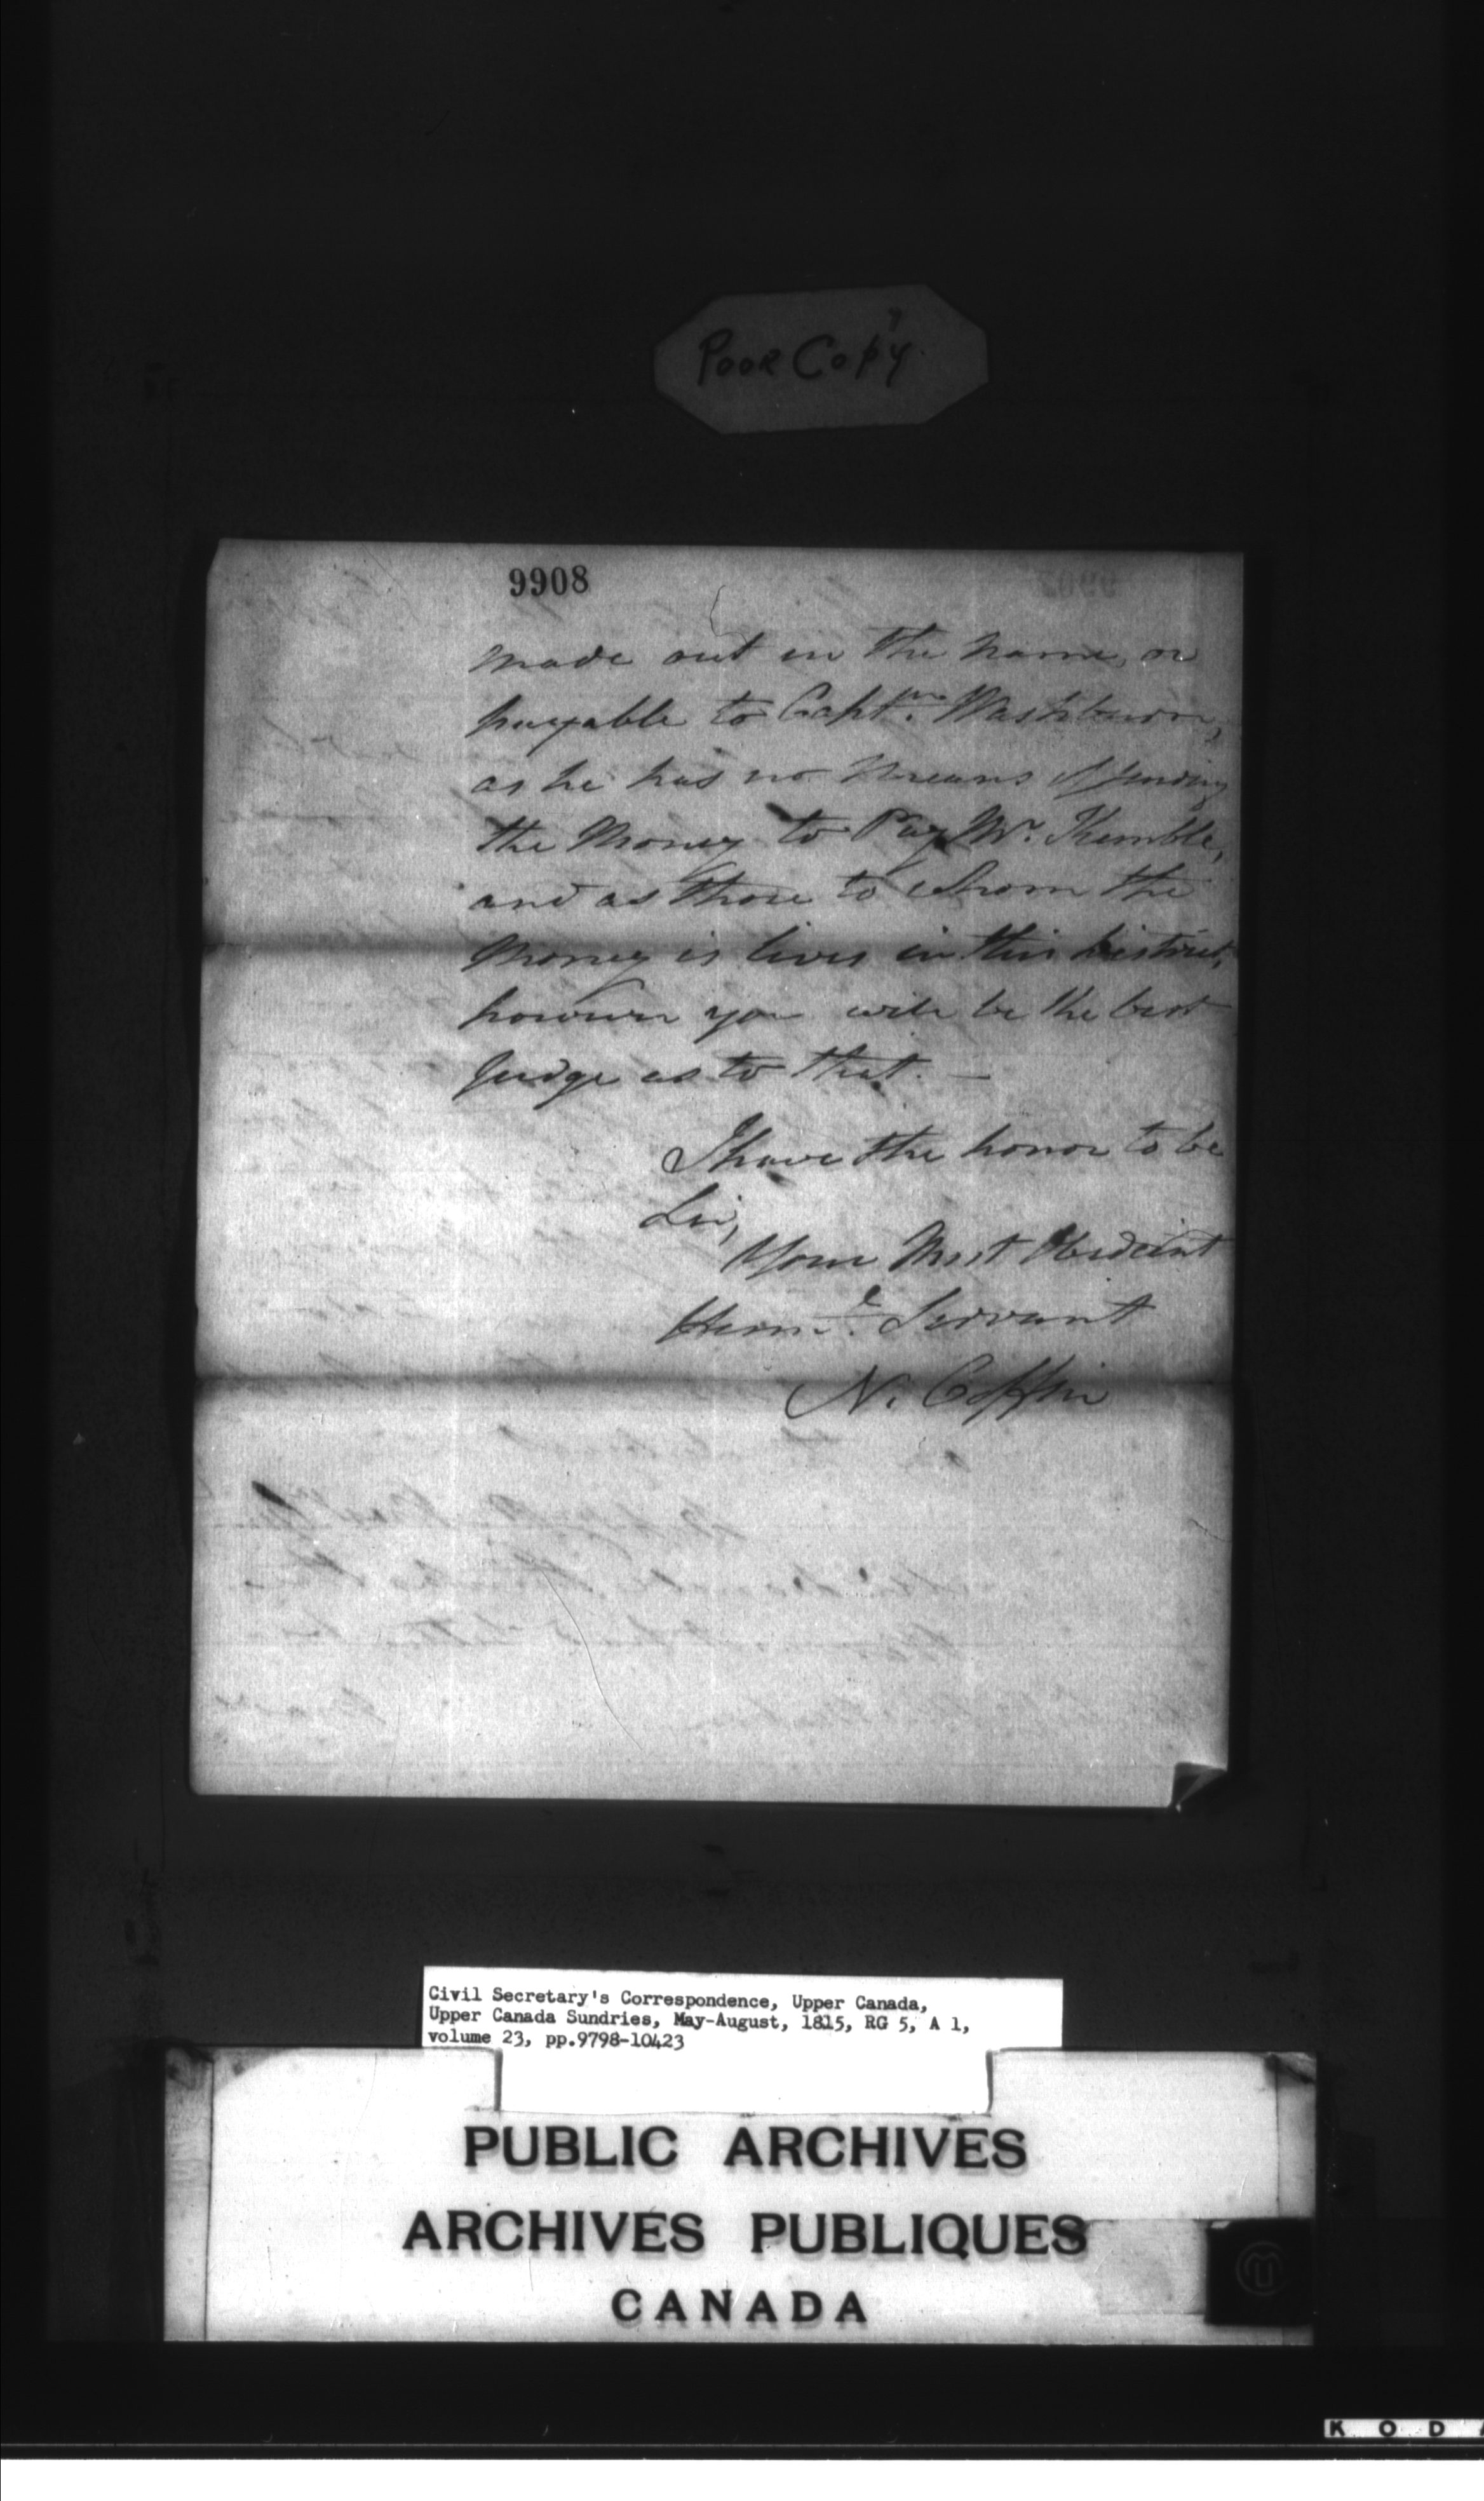 Poor Copy
9908
made out in the name, or
payable to Capt.n Washburn,
as he has no means of sending
the Money to Pay Mr. Kemble,
and as those to whom the
money is lives in this district,
however you will be the best
Judge as to that. —
I have the honor to be
Sir,
Your Most Obedient
Hum.e Servant
N. Coffin
Civil Secretary's Correspondence, Upper Canada,
Upper Canada Sundries, May-August, 1815, RG 5, A 1,
volume 23, pp.9798-10423
PUBLIC ARCHIVES
ARCHIVES PUBLIQUES
CANADA
K O D A